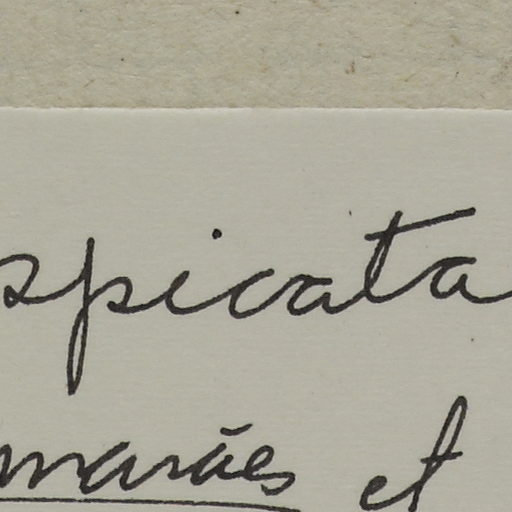 spicata
marães et